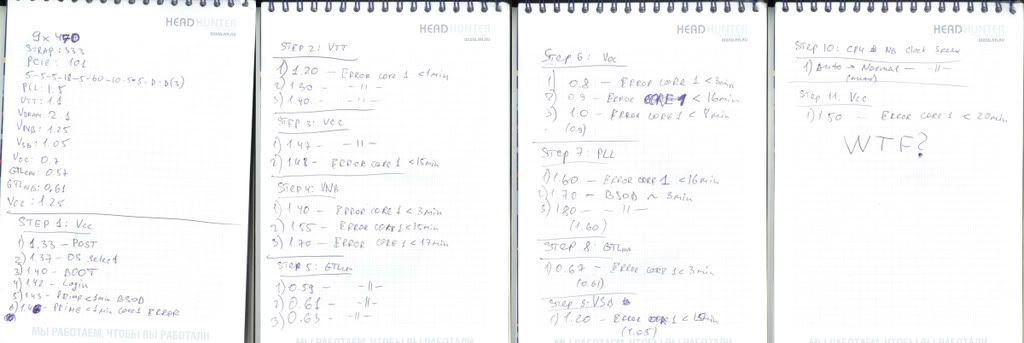 HEADHUNTER
www.hh.ru
9x470
STRAP: 333
PCIE: 101
5-5-5-18-5-60-10-5
PLL: 1.5
VTT: 1.1
VDRAM: 2.1
VNB: 1.25
VSB: 1.05
VOC: 0.7
GTLCPU: 0.57
GTLNB: 0.61
VCC: 1.25
STEP 1: VCC
1) 1.33 - POST
2) 1.37 - OS select
3) 1.40 - BOOT
4) 1.42 - Login
5) 1.43 - PRIME <1min BSOD
PRIME <1min CORE1 ERROR
МЫ РАБОТАЕМ, ЧТОБЫ ВЫ РАБОТАЛИ
HEADHUNTER
www.hh.ru
STEP 2: VTT
1) 1.20 - ERROR CORE 1 <1min
2) 1.30 - -||-
3) 1.40 - -||-
STEP 3: VCC
1) 1.47 - -||-
2) 1.48 - ERROR CORE 1 <15min
STEP 4: VNB
1) 1.40 - ERROR CORE 1 <3min
2) 1.55 - ERROR CORE 1 <15min
3) 1.70 - ERROR CORE 1 <17min
STEP 5: GTL
1) 0.59 - -||-
2) 0.61 - -||-
3) 0.63 - -||-
МЫ РАБОТАЕМ, ЧТОБЫ ВЫ РАБОТАЛИ
HEADHUNTER
www.hh.ru
STEP 6: VOC
1) 0.8 - ERROR CORE 1 <3min
2) 0.9 - ERROR CORE 1 <16min
3) 1.0 - ERROR CORE 1 <8min
(0.9)
STEP 7: PLL
1) 1.60 - ERROR CORE 1 <16min
2) 1.70 - BSOD ~ 3min
3) 1.80 - -||-
(1.60)
STEP 8: GTL
1) 0.67 - ERROR CORE 1 <3min
(0.61)
STEP 9: VSB
1) 1.20 - ERROR CORE 1 <15min
(1.05)
МЫ РАБОТАЕМ, ЧТОБЫ ВЫ РАБОТАЛИ
HEADHUNTER
www.hh.ru
STEP 10: CPU NB Clock Skew
1) Auto → Normal - -||-
STEP 11: VCC
1) 1.50 - ERROR CORE 1 <20min
WTF?
МЫ РАБОТАЕМ, ЧТОБЫ ВЫ РАБОТАЛИ